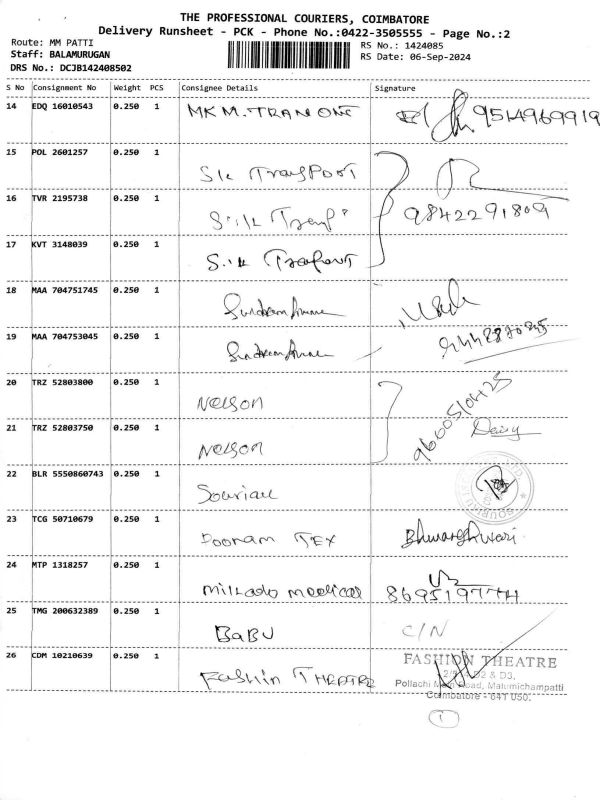 THE PROFESSIONAL COURIERS, COIMBATORE
Delivery Runsheet - PCK - Phone No.:0422-3505555 - Page No.:2
Route: MM PATTI
Staff: BALAMURUGAN
DRS No.: DCJB142408502
RS No.: 1424085
RS Date: 06-Sep-2024
S No Consignment No Weight PCS Consignee Details Signature
14 EDQ 16010543 0.250 1 MK M. TRAN ONE 9514969919
15 POL 2601257 0.250 1 Sik Transport
16 TVR 2195738 0.250 1 9842291809
17 KVT 3148039 0.250 1
18 MAA 704751745 0.250 1
19 MAA 704753045 0.250 1
20 TRZ 52803800 0.250 1 Nelson
21 TRZ 52803750 0.250 1 Nelson 9600510425 Daisy
22 BLR 5550860743 0.250 1 Souriau
23 TCG 50710679 0.250 1 Poonam TEX
24 MTP 1318257 0.250 1 Mikado Medical
25 TMG 200632389 0.250 1 BABU C/N
26 CDM 10210639 0.250 1 Fashin THEATRE
FASHION THEATRE
D2 & D3,
Pollachi Main Road, Malumichampatti
Coimbatore - 641 050.
1